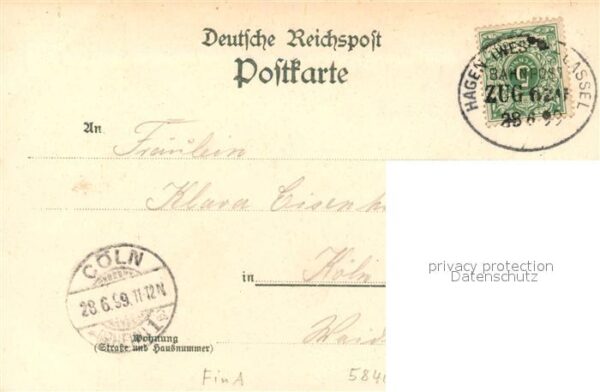 Deutsche Reichspost
Postkarte
HAGEN (WESTF) CASSEL
BAHNPOST
ZUG 62
28 6 99
An
Fräulein
Klara Eisenh
privacy protection
Datenschutz
CÖLN
28.6.99.11-12N
1
in Köln
Waid
Wohnung
(Straße und Hausnummer)
FinA
584